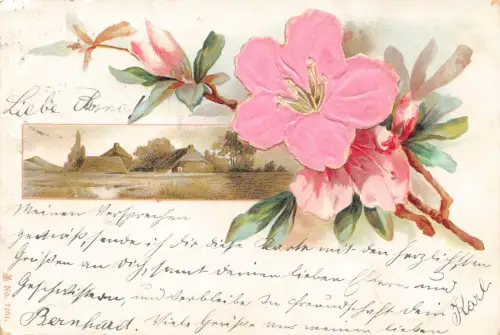 Liebe
Meinen Versprechen
gemäß, sende ich Dir diese Karte mit den herzlichsten
Grüßen an Dich, samt deinen lieben Eltern und
Geschwistern, und verbleibe in Freundschaft dein
Bernhard. Viele Grüße aus meinen lieben
Karl
No. 7251